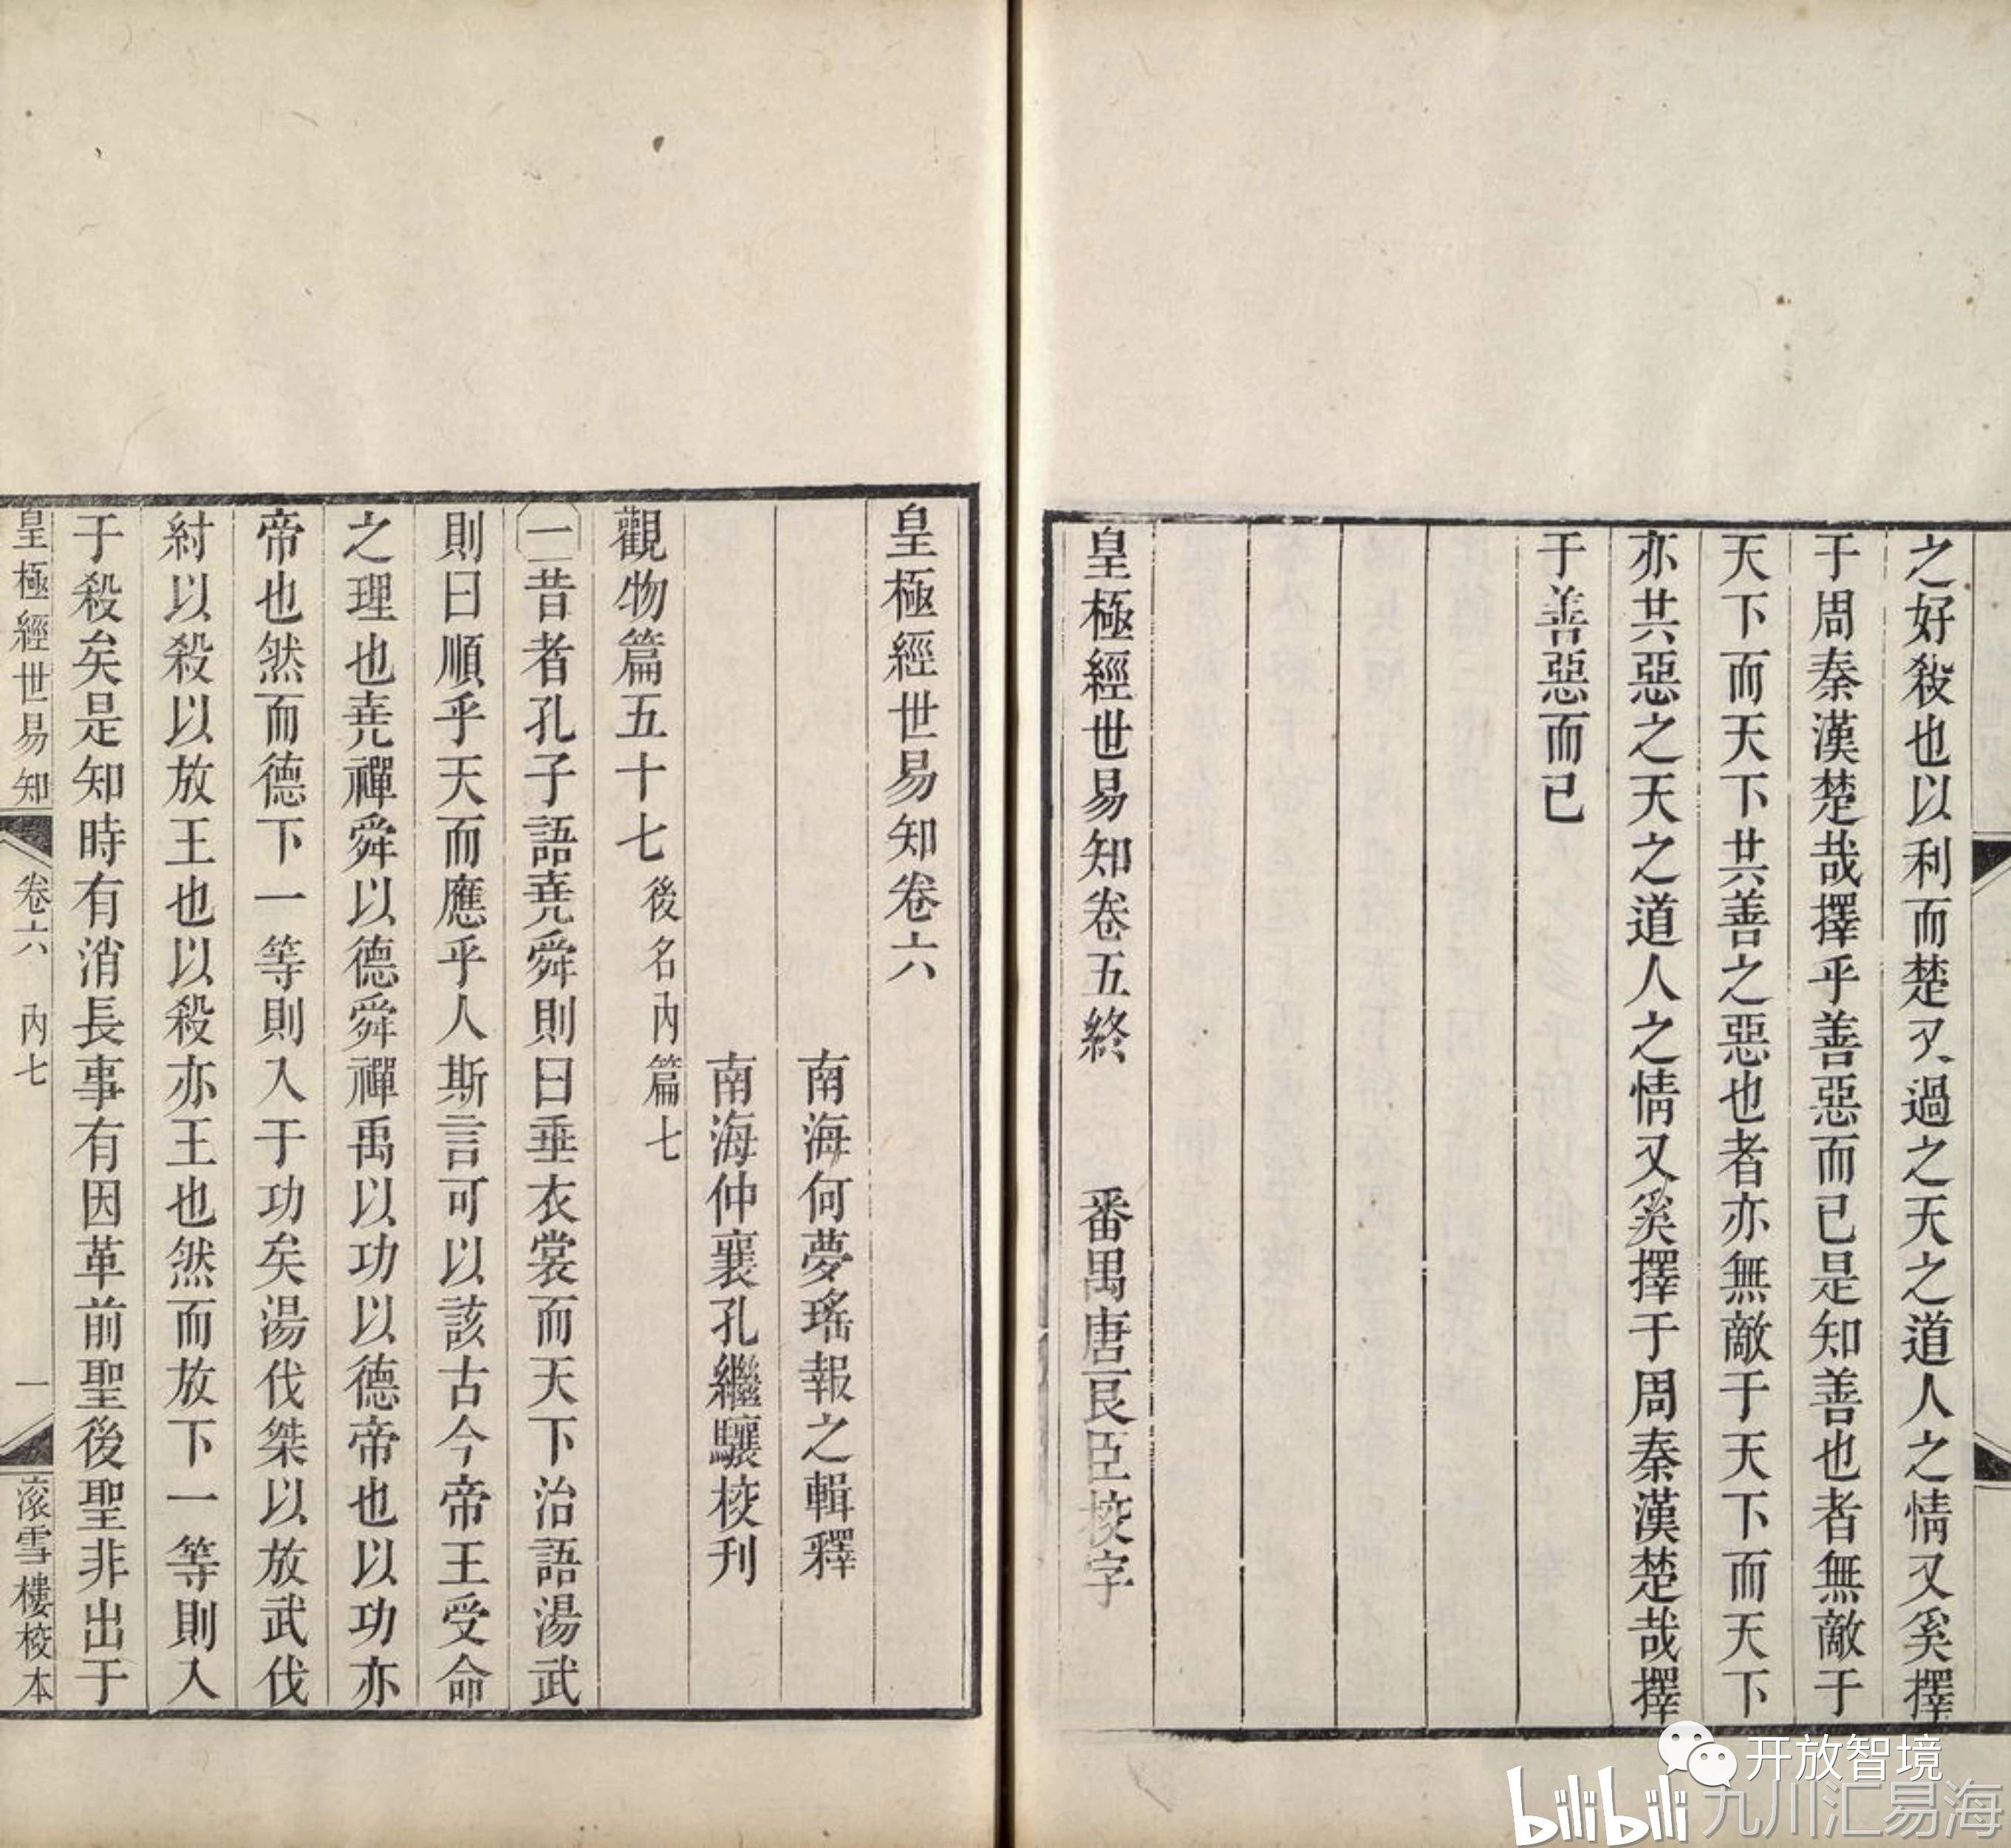 之好殺也以利而楚又過之天之道人之情又奚擇
于周秦漢楚哉擇乎善惡而已是知善也者無敵于
天下而天下共善之惡也者亦無敵于天下而天下
亦共惡之天之道人之情又奚擇于周秦漢楚哉擇
于善惡而已
皇極經世易知卷五終 番禺唐良臣校字
皇極經世易知卷六
南海何夢瑤報之輯釋
南海仲襄孔繼驤校刊
觀物篇五十七後名內篇七
一昔者孔子語堯舜則曰垂衣裳而天下治語湯武
則曰順乎天而應乎人斯言可以該古今帝王受命
之理也堯禪舜以德舜禪禹以功以德帝也以功亦
帝也然而德下一等則入于功矣湯伐桀以放武伐
紂以殺以放王也以殺亦王也然而放下一等則入
于殺矣是知時有消長事有因革前聖後聖非出于
皇極經世易知 卷六 內七 一 滾雪樓校本
开放智境
bilibili 九川汇易海